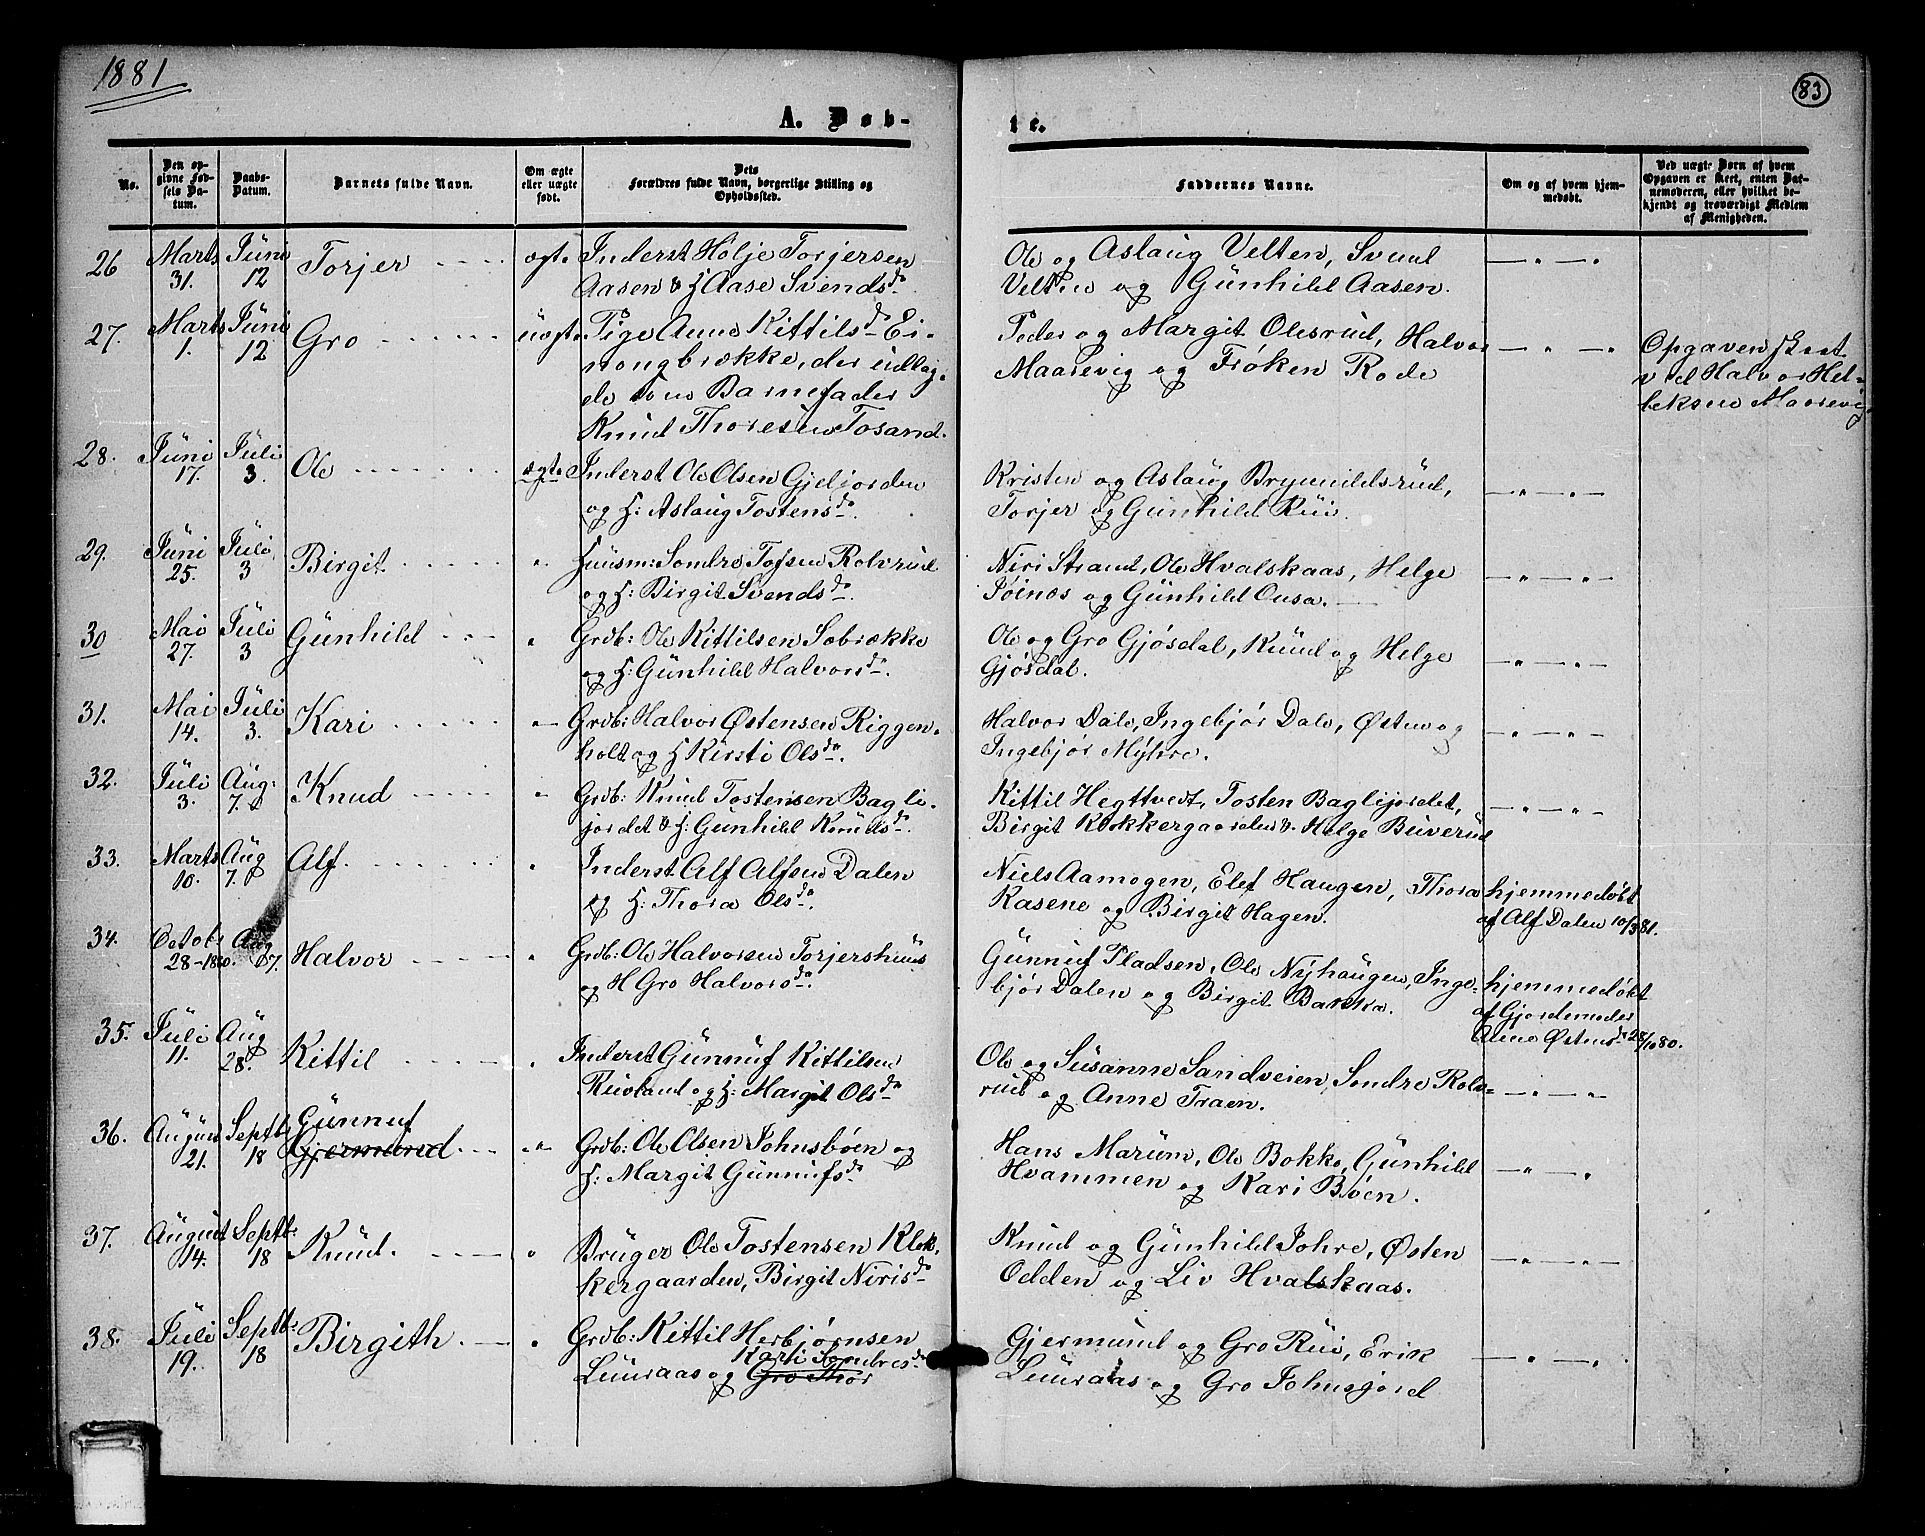 1881
83
A. Døb-
te.
No.
Den op-
givne Fød-
sels Da-
tum.
Daabs-
Datum.
Barnets fulde Navn.
Om ægte
eller uægte
født.
Dets
Forældres fulde Navn, borgerlige Stilling og
Opholdssted.
Faddernes Navne.
Om og af hvem hjem-
medøbt.
Ved uægte Børn af hvem
Opgaven er skeet, enten Bar-
nemoderen, eller hvilket be-
kjendt og troværdigt Medlem
af Menigheden.
26 Marts 31. Juni 12 Torjer ægt. Inderst Hølje Torjersen
Aasen & H Aase Svendsdr.
Ole og Aslaug Velten, Svend
Velten og Günhild Aasen.
27. Marts 1. Juni 12 Gro uægt. Pige Anne Kittilsdr Ei-
nongbrække, der udlag-
de som Barnefader
Knud Thoresen Tosand.
Peder og Margit Olesrud, Halvor
Maarevig og Frøken Rode
Opgaven skeet
ved Halvor Hel-
leksen Maarevig
28. Juni 17. Juli 3. Ole ægte Inderst Ole Olsen Gjeljorden
og H: Aslaug Tostensdr.
Kristen og Aslaug Brynnildsrud,
Torjer og Günhild Rui.
29. Juni 25. Juli 3 Birgit " Huusm: Sondre Tofsen Rolvrud
og H: Birgit Svendsdr.
Niri Strand, Ole Hvalskaas, Helge
Jøinøs og Günhild Ousa.
30 Mai 27. Juli 3 Günhild " Grdb: Ole Kittilsen Sobrække
og H: Günhild Halvorsdr.
Ole og Gro Gjøsdal, Knud og Helge
Gjøsdal.
31. Mai 14. Juli 3. Kari " Grdb: Halvor Østensen Riggen-
holt og H Kirsti Olsdr.
Halvor Dale, Ingebjør Dale, Østen og
Ingebjør Myhre.
32. Juli 3. Aug. 7. Knud " Grdb: Knud Tostensen Bagli-
jordet & H: Günhild Knudsdr.
Kittil Hegttvedt, Tosten Baglijordet,
Birgit Klokkergaarden & Helge Buverud
33. Marts 10. Aug 7. Alf. " Inderst Alf Alfsen Dalen
og H: Thora Olsdr.
Niels Aamogen, Elef Haugen, Thora
Kasene og Birgit Hagen.
hjemmedøbt
af Alf Dalen 10/3 81.
34. Octob: 28-1880. Aug 7. Halvor " Grdb: Ole Halvorsen Torjershuus
og H Gro Halvorsdr.
Günnuf Pladsen, Ole Nyhaugen, Inge-
bjør Dalen og Birgit Bakka.
hjemmedøbt
af Gjordemoder
Anne Østensdr 28/10 80.
35. Juli 11. Aug 28. Kittil " Inderst Günnuf Kittilsen
Ruvland og H: Margit Olsdr
Ole og Susanne Sandveien, Sondre Rolv-
rud og Anne Traen.
36. August 21. Septb: 18 Günnuf
Gjermund " Grdb: Ole Olsen Johnsbøen og
H: Margit Günnufsdr
Hans Marum, Ole Bokko, Günhild
Hvammen og Kari Bøen.
37. August 14. Septb: 18 Knud. " Bruger Ole Tostensen Klok-
kergaarden, Birgit Nirisdr
Knud og Günhild Johre, Østen
Odden og Liv Hvalskaas.
38. Juli 19. Septb: 18 Birgith " Grdb: Kittil Herbjørnsen
Luuraas og Kari Sondresdr Gro Thor
Gjermund og Gro Rui, Erik
Luuraas og Gro Johnsjord